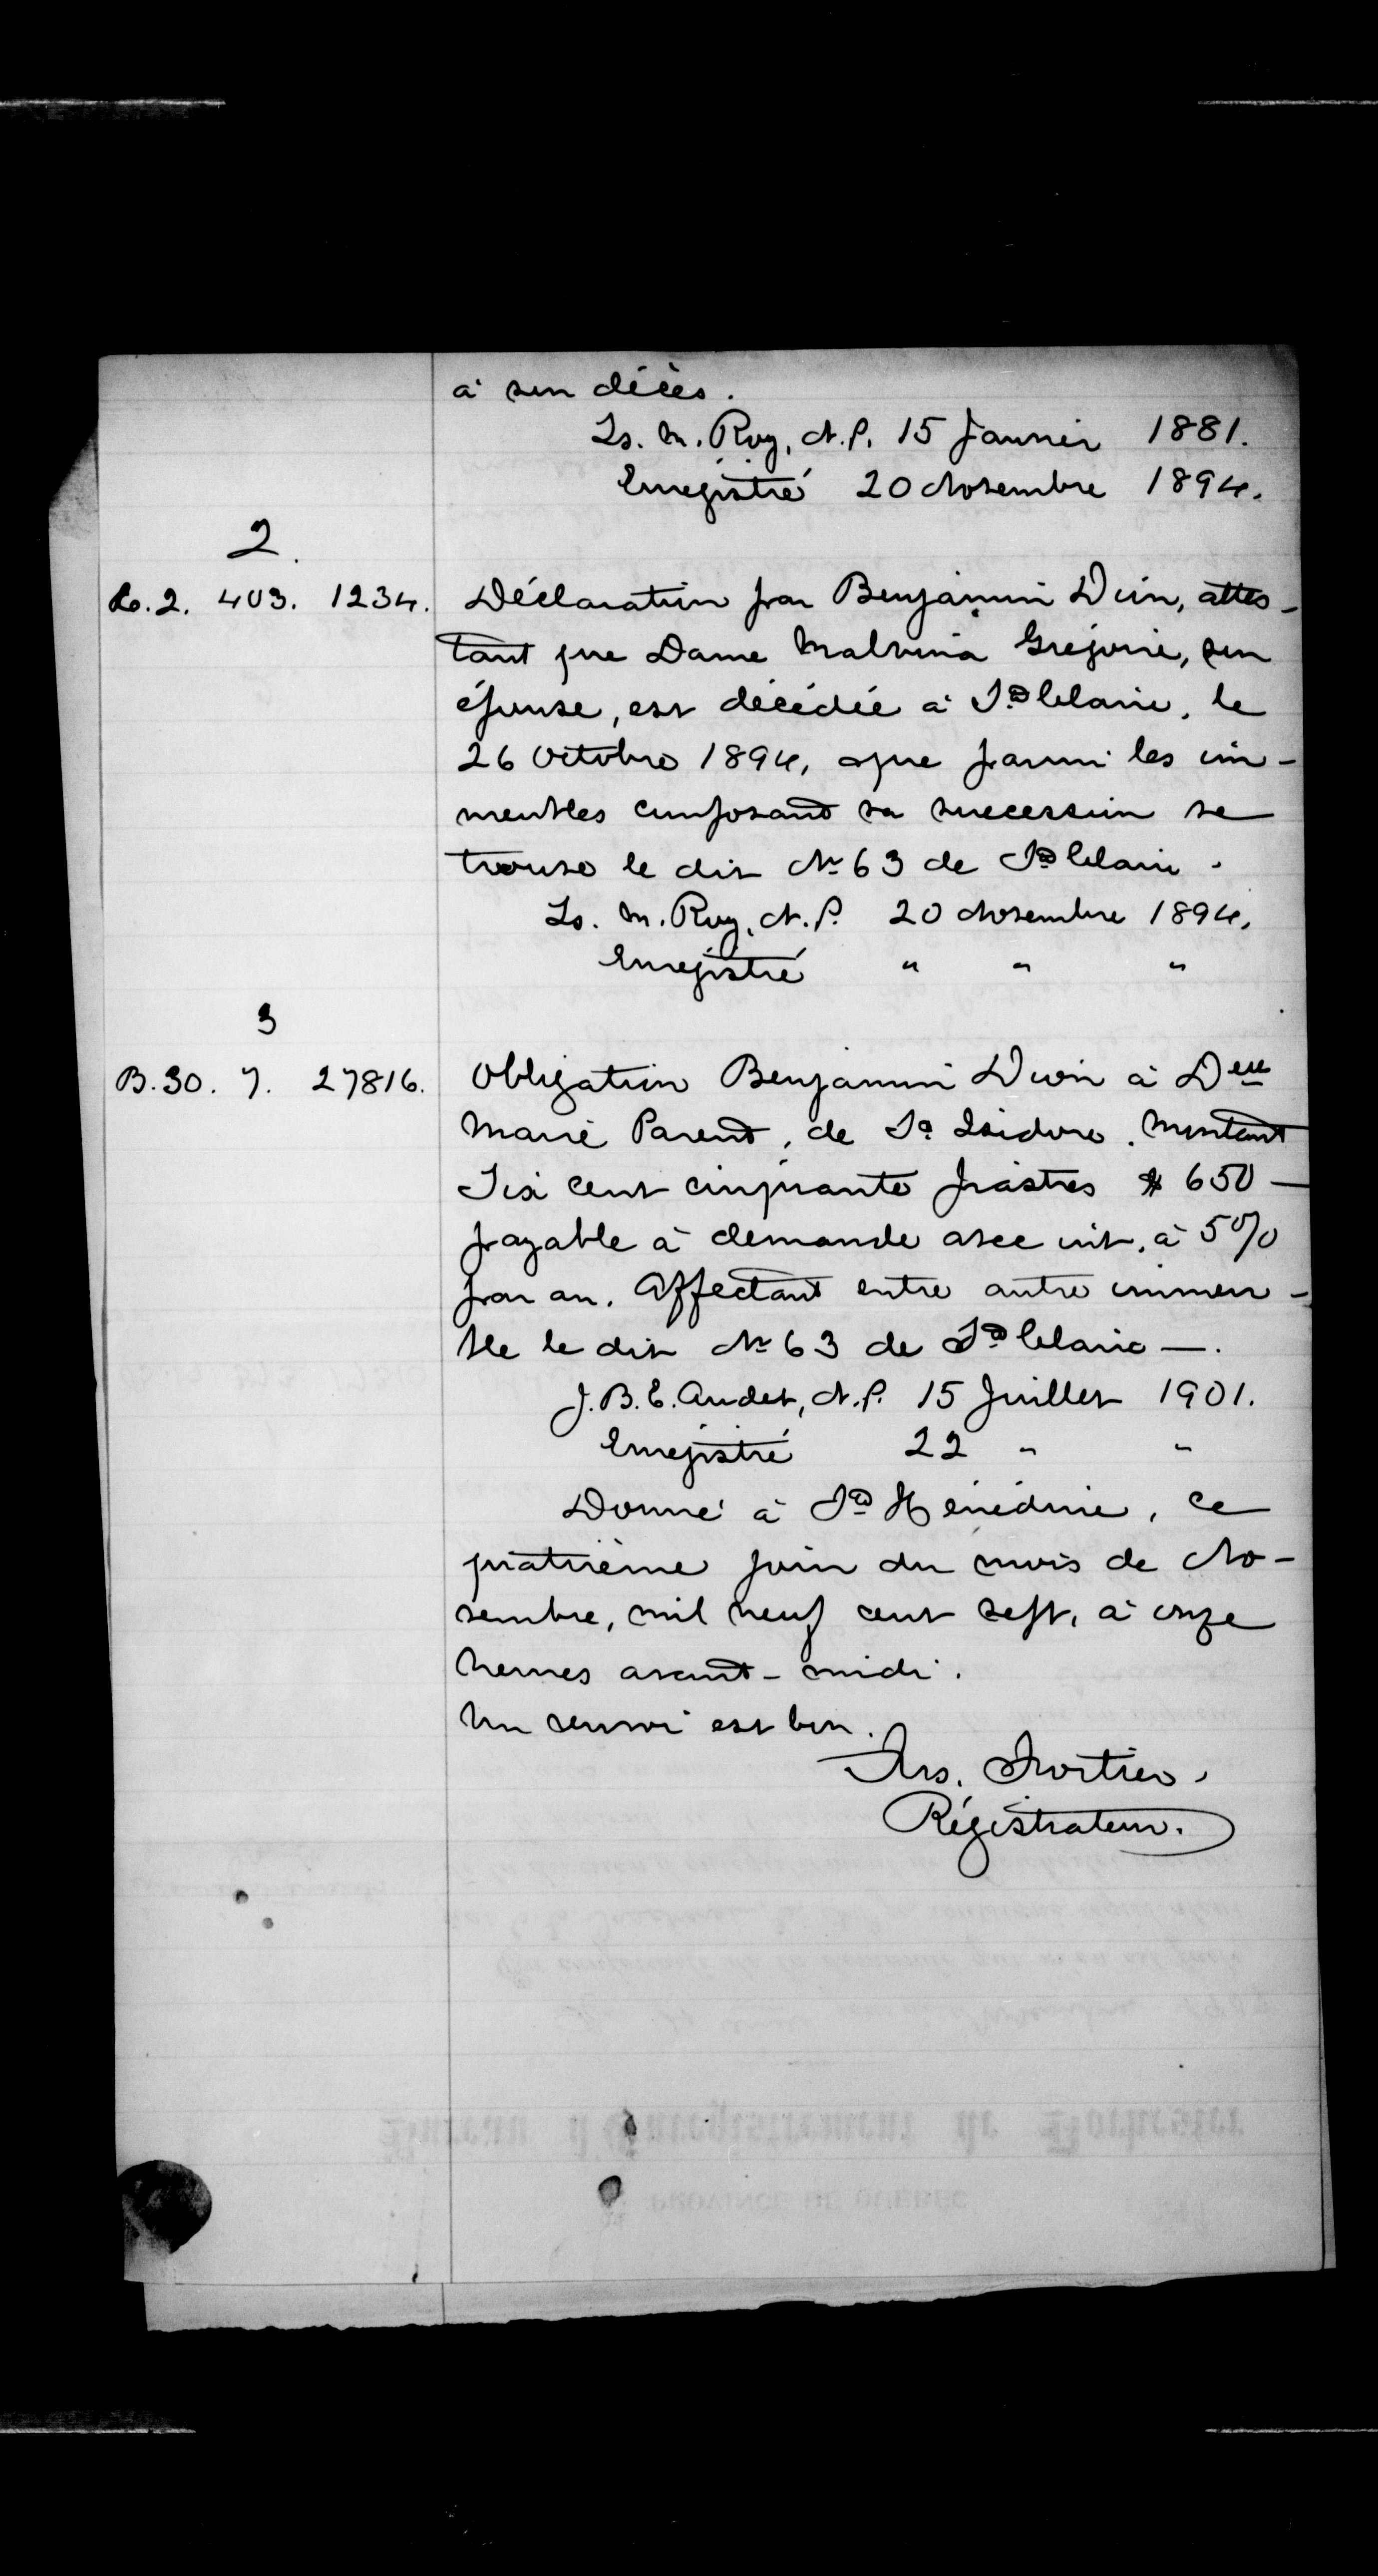 à son décès.
Ls. N. Roy, N.P. 15 Janvier 1881.
Enregistré 20 Novembre 1894.
2.
Lo. 2. 403. 1234. Déclaration par Benjamin Dion, attes-
tant que Dame Malvina Grégoire, son
épouse, est décédée à Ste Claire, le
26 Octobre 1894, & que parmi les im-
meubles composant sa succession se
trouve le dit No 63 de Ste Claire.
Ls. N. Roy, N.P. 20 Novembre 1894,
Enregistré " " "
3
B. 30. 7. 27816. Obligation Benjamin Dion à Delle
Marie Parent, de St Isidore. Montant
Six cent cinquante piastres $650 —
payable à demande avec int. à 5%
par an. Affectant entre autre immeu-
ble le dit No 63 de Ste Claire —.
J.B.E. Audet, N.P. 15 Juillet 1901.
Enregistré 22 " "
Donné à Ste Hénédine, ce
quatrième jour du mois de No-
vembre, mil neuf cent sept, à onze
heures avant-midi.
Un renvoi est bon.
Ars. Fortier,
Régistrateur.